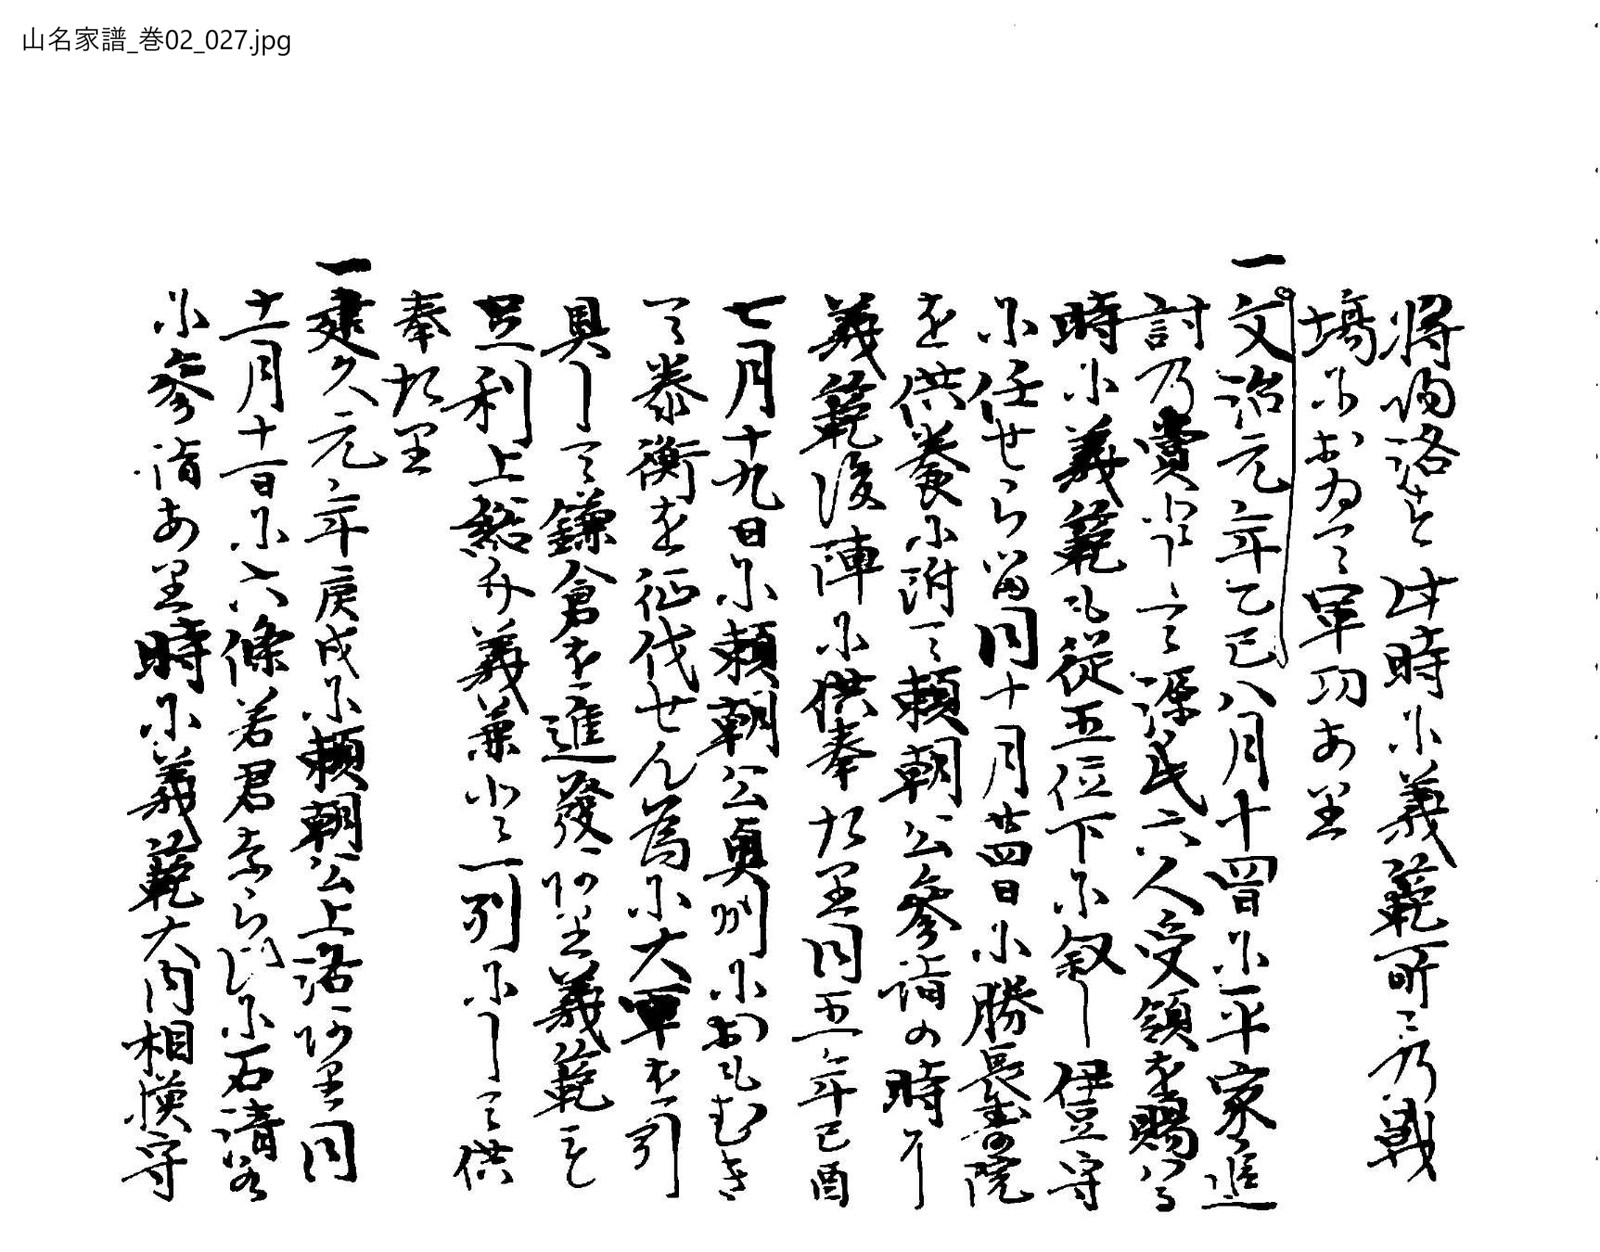 山名家譜_巻02_027.jpg
将帰洛す此時に義範所々の戦
場におゐて軍功あり
一文治元年乙巳八月十四日に平家進
討の賞として源氏六人受領を賜はる
時に義範も従五位下に叙し伊豆守
に任せらる同十月廿四日に勝長寿院
を供養に附て頼朝公参詣の時に
義範後陣に供奉たり同五年己酉
七月十九日に頼朝公奥州におもむき
て泰衡を征伐せん為に大軍を引
具して鎌倉を進発あり義範も
足利上総介義兼と一列にして供
奉たり
一建久元年庚戌に頼朝公上洛あり同
十一月十一日に六條若君ならびに石清水
に参詣あり時に義範大内相模守